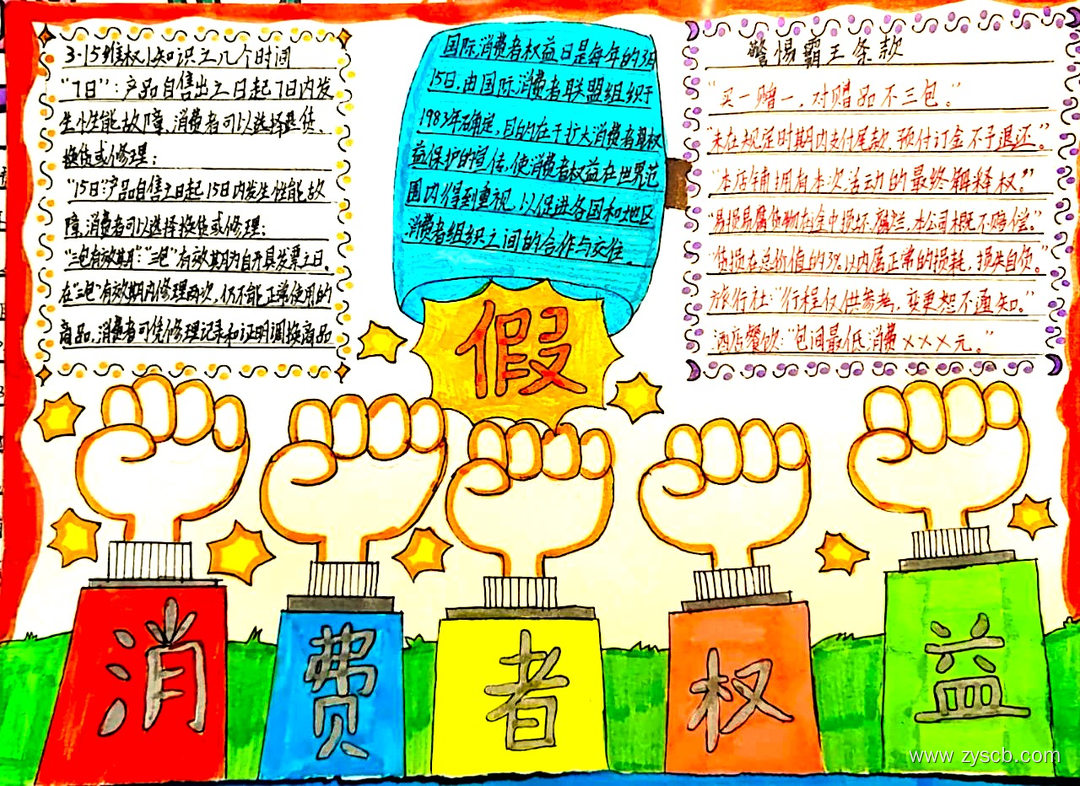 3·15维权小知识之几个时间
"7日":产品自售出之日起7日内发
生性能故障,消费者可以选择退货、
换货或修理;
"15日"产品自售之日起15日内发生性能故
障,消费者可以选择换货或修理;
"三包有效期""三包"有效期内自开具发票之日,
在"三包"有效期内修理两次,仍不能正常使用的
商品,消费者可凭修理记录和证明调换商品
国际消费者权益日是每年的3月
15日,由国际消费者联盟组织于
1983年确定,目的在于扩大消费者
益保护的宣传,使消费者权益在世界范
围内得到重视,以促进各国和地区
消费者组织之间的合作与交往。
警惕霸王条款
"买一赠一,对赠品不三包。"
"未在规定时期内支付尾款,预付订金不予退还。"
"本店铺拥有本次活动的最终解释权。"
"易损易腐货物在途中损坏腐烂,本公司概不赔偿。"
"货损在总价值的3%以内属正常的损耗,损失自负。"
旅行社:"行程仅供参考,变更恕不通知。"
酒店餐饮:"包间最低消费×××元。"
假
消费者权益
www.zyscb.com